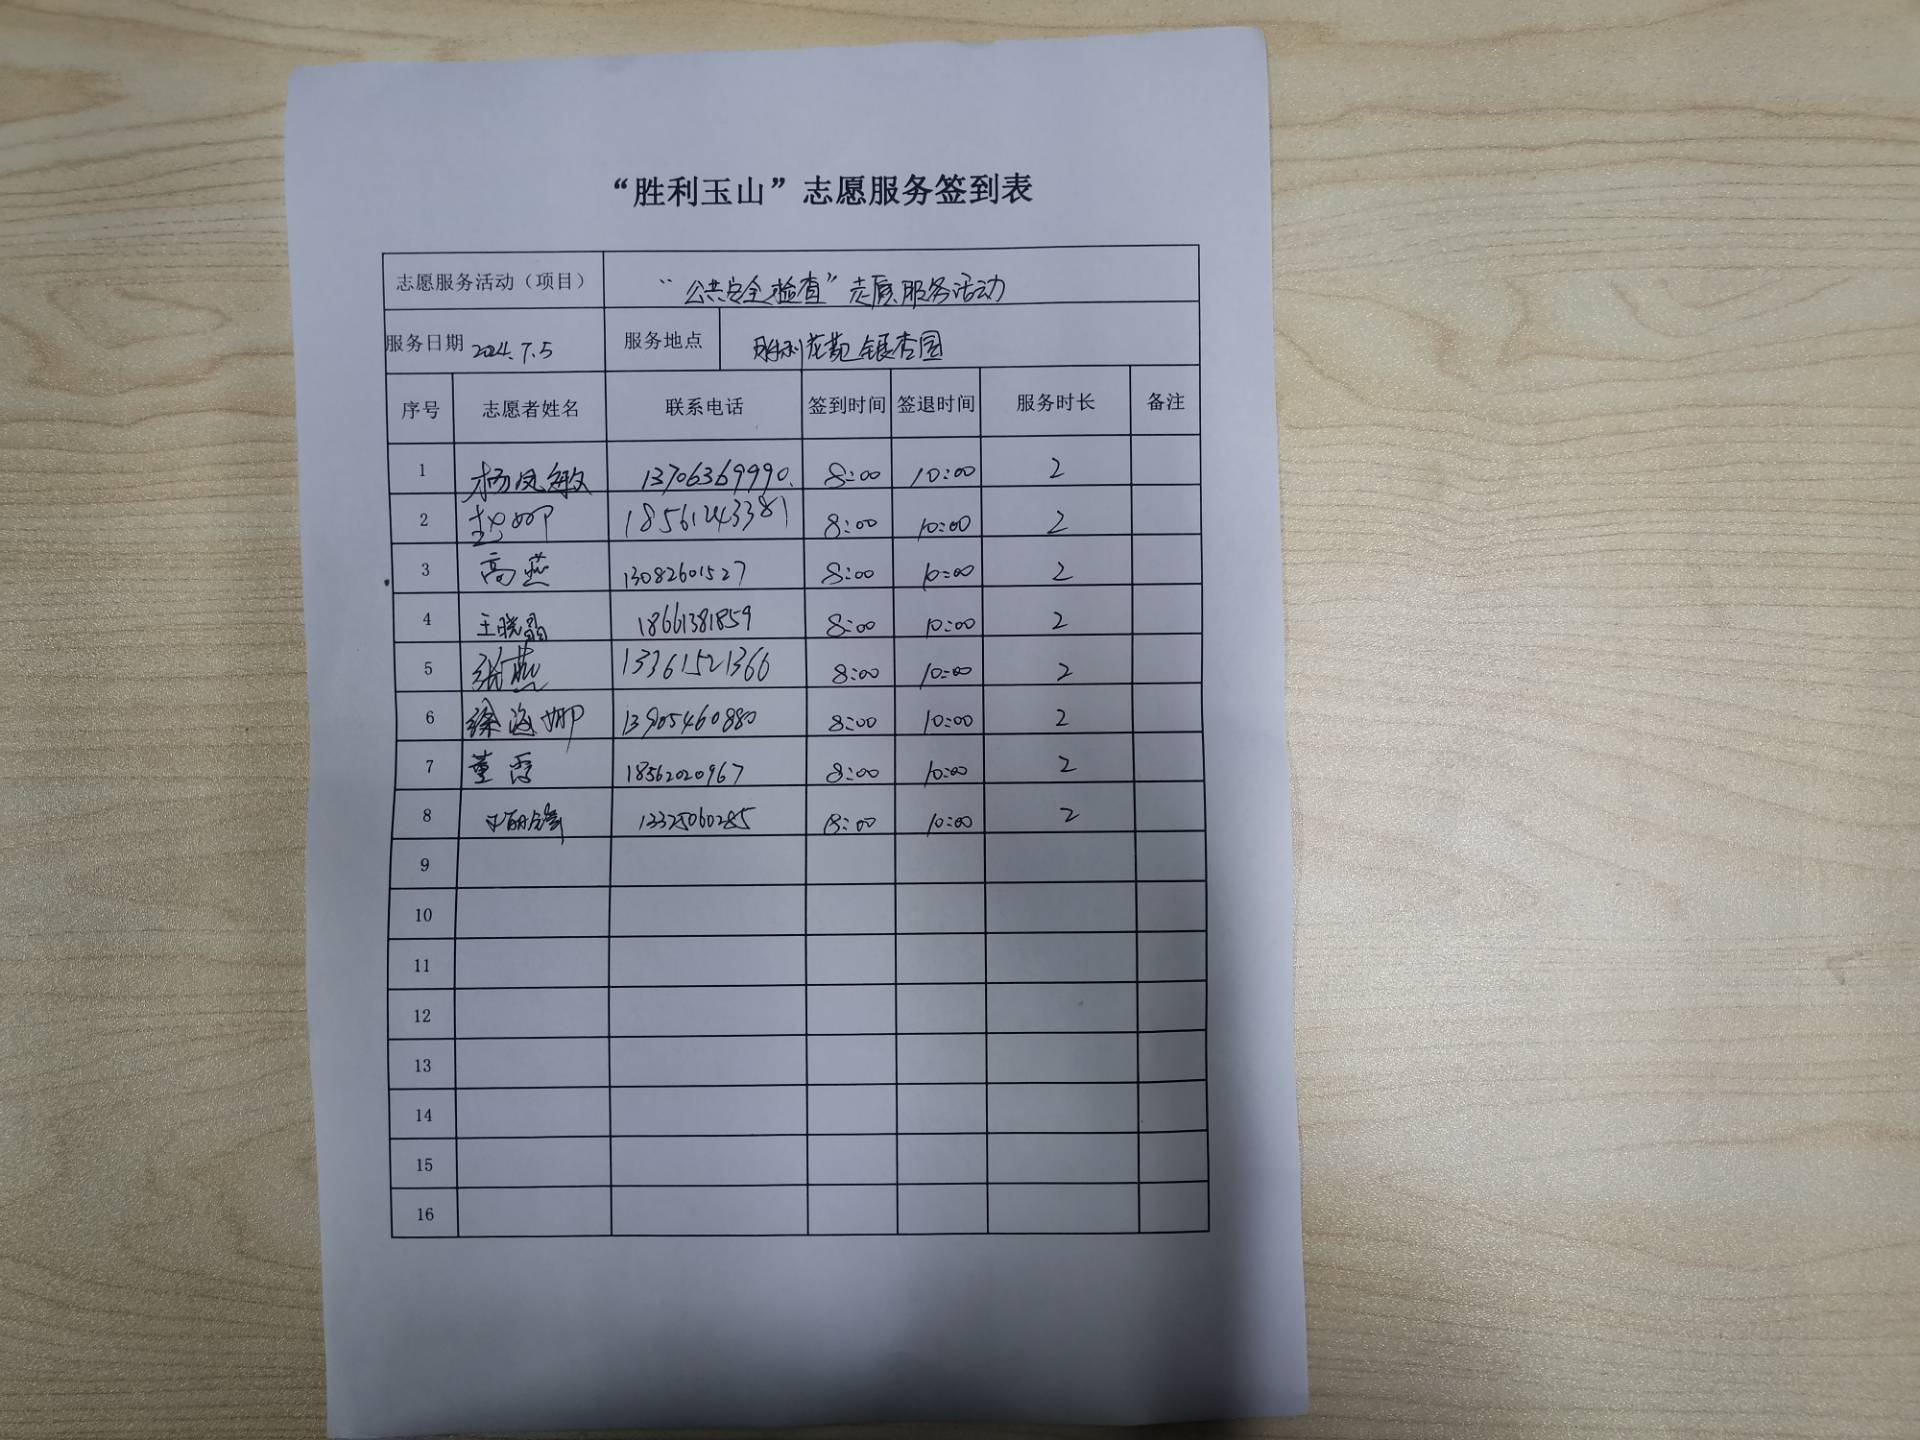 “胜利玉山”志愿服务签到表
志愿服务活动（项目） “公共安全检查”志愿服务活动
服务日期 2024.7.5 服务地点 胜利花苑银杏园
序号 志愿者姓名 联系电话 签到时间 签退时间 服务时长 备注
1 杨凤敏 13706369990. 8:00 10:00 2
2 赵娜 18561243381 8:00 10:00 2
3 高燕 13082601527 8:00 10:00 2
4 王晓晶 18661381859 8:00 10:00 2
5 张燕 13361521366 8:00 10:00 2
6 徐海娜 13905460880 8:00 10:00 2
7 董霞 18562020967 8:00 10:00 2
8 13325060285 8:00 10:00 2
9
10
11
12
13
14
15
16